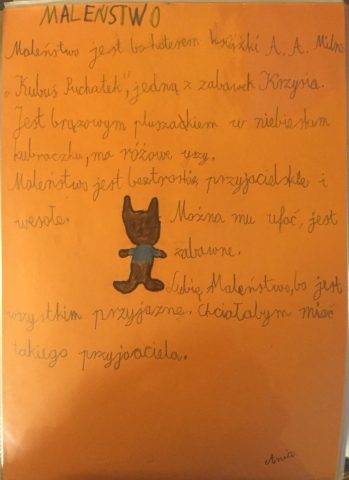 MALEŃSTWO
Maleństwo jest bohaterem książki A. A. Milna
„Kubuś Puchatek", jedną z zabawek Krzysia.
Jest brązowym pluszakiem w niebieskim
kubraczku, ma różowe uszy.
Maleństwo jest beztroskie, przyjacielskie i
wesołe. Można mu ufać, jest
zabawne.
Lubię Maleństwo, bo jest
wszystkim przyjazne. Chciałabym mieć
takiego przyjaciela.
Ania